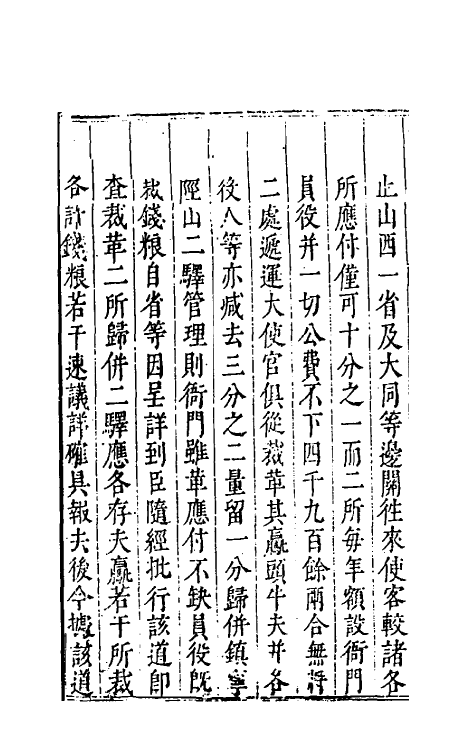 止山西一省及大同等邊關往來使客較諸各
所應付僅可十分之一而二所每年額設衙門
員役并一切公費不下四千九百餘兩合無將
二處遞運大使官俱從裁革其驘頭牛夫并各
役人等亦减去三分之二量留一分歸併鎮寧
陘山二驛管理則衙門雖革應付不缺員役既
裁錢粮自省等因呈詳到臣隨經批行該道即
查裁革二所歸併二驛應各存夫驘若干所裁
各計錢粮若干速議詳確具報夫後今據該道